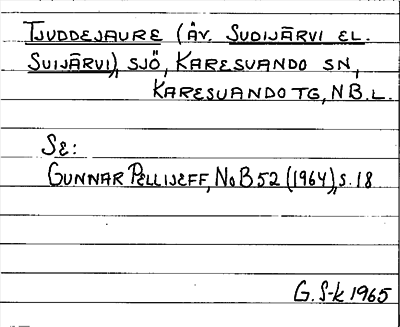 TJUDDEJAURE (ÄV. SUDIJÄRVI EL.
SUIJÄRVI), SJÖ, KARESUANDO SN,
KARESUANDO TG, N B. L.
SE:
GUNNAR PELLIJEFF, NoB 52 (1964), S. 18
G. S-k 1965